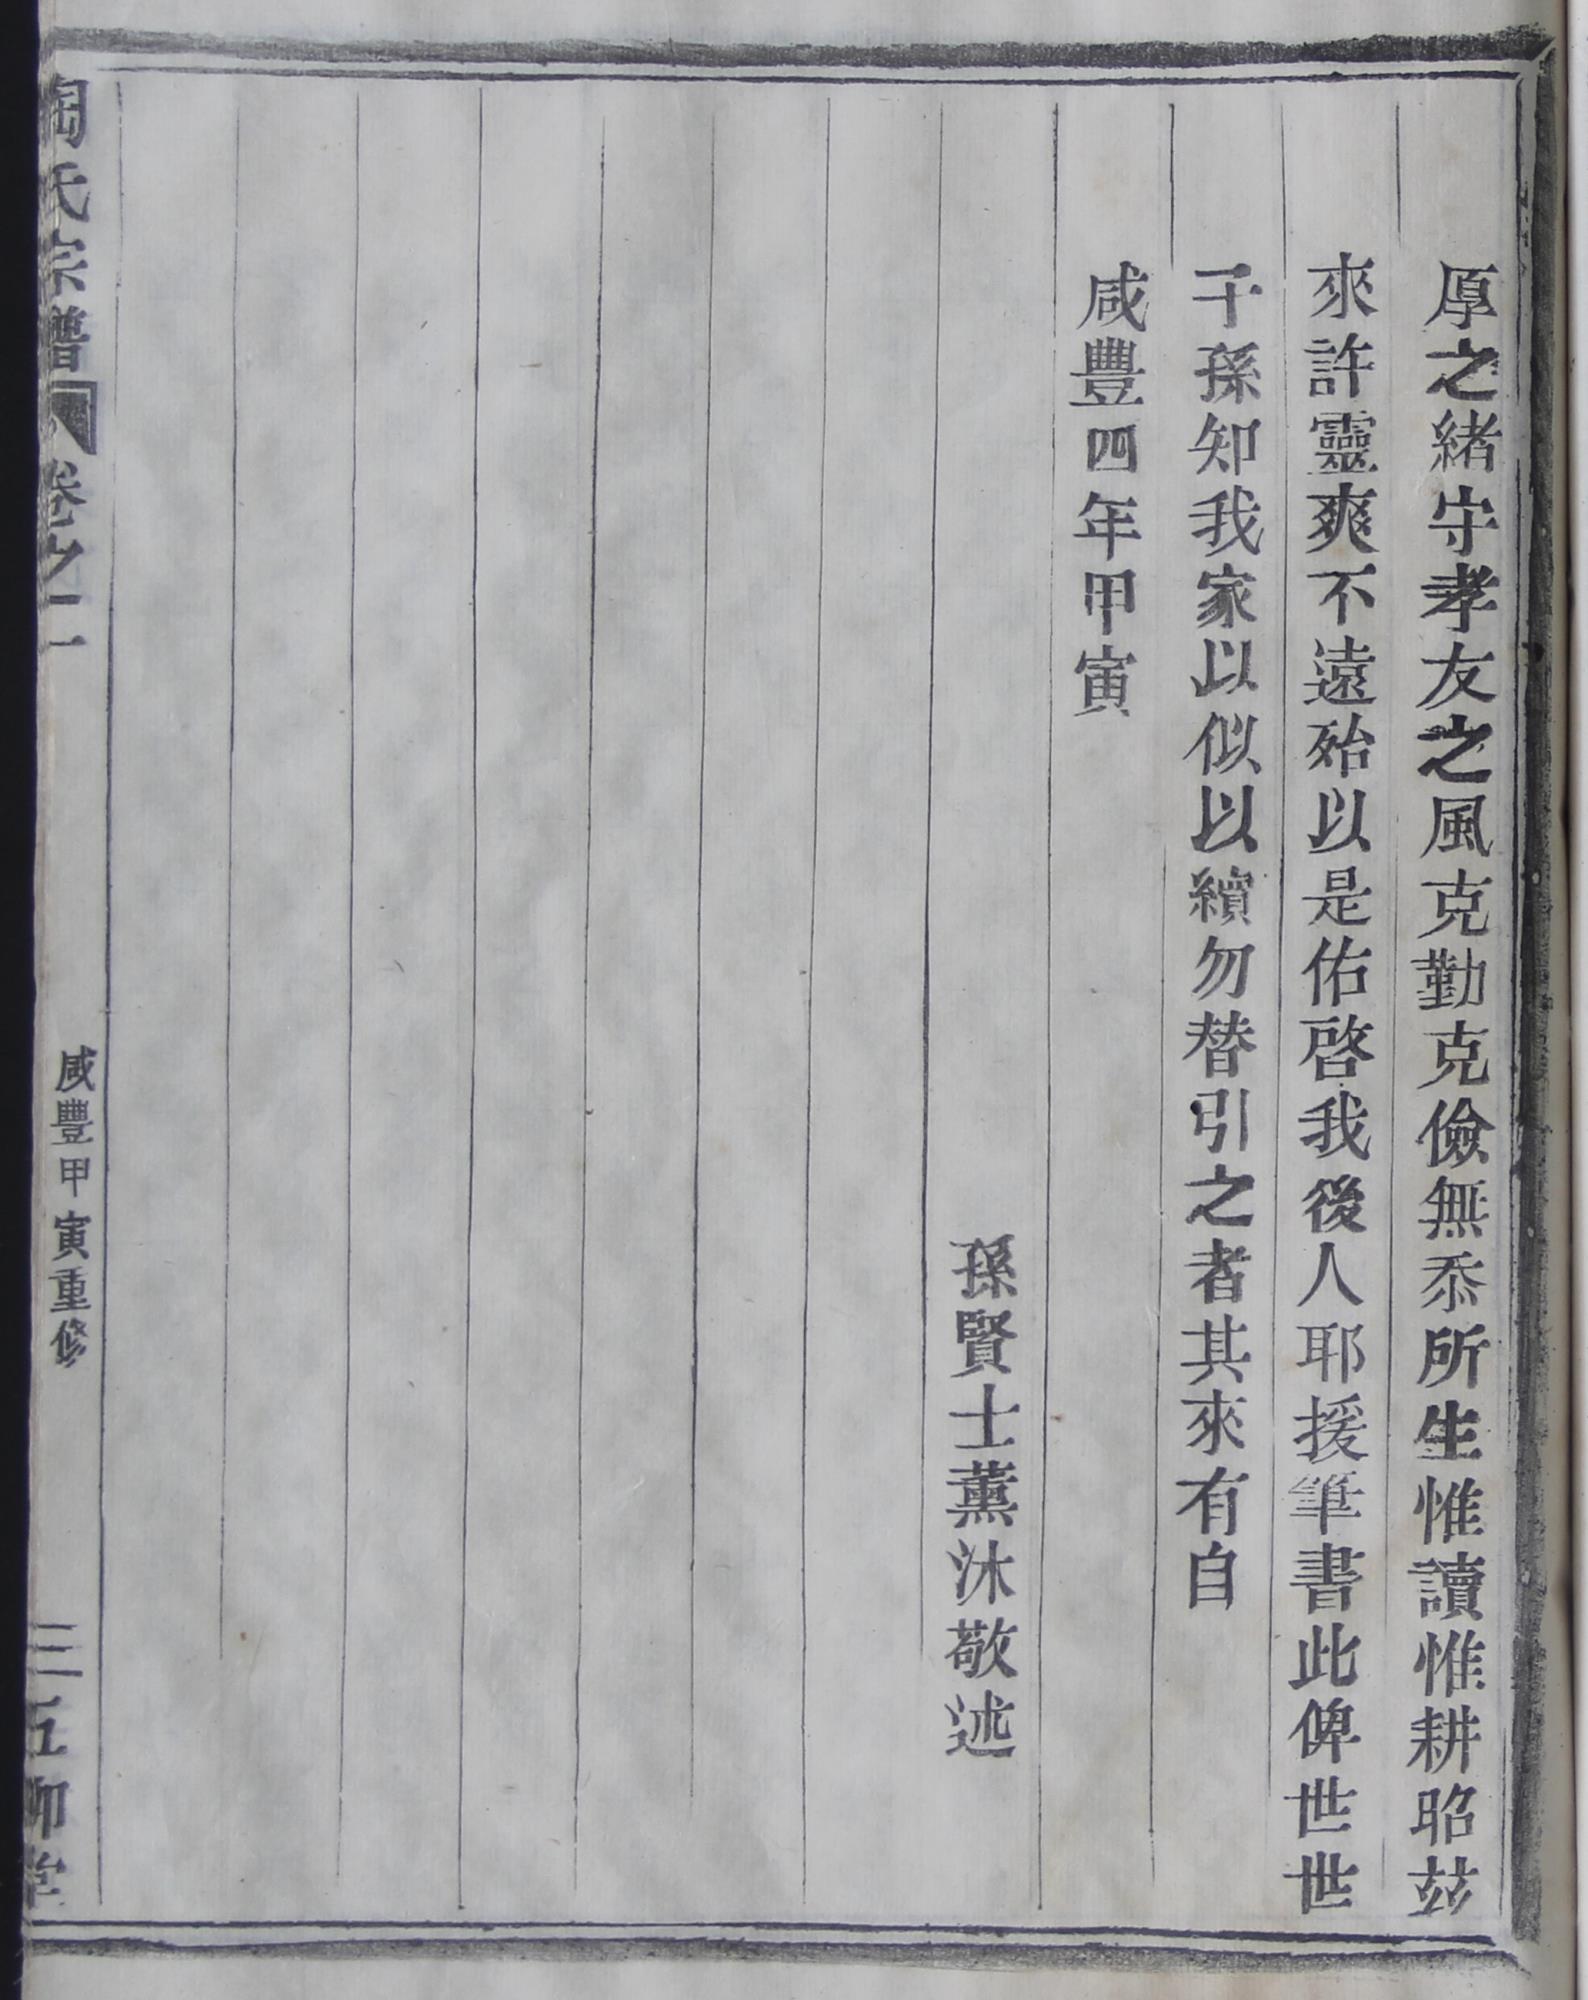 厚之緒守孝友之風克勤克儉無忝所生惟讀惟耕昭茲
來許靈爽不遠殆以是佑啓我後人耶援筆書此俾世世
子孫知我家以似以續勿替引之者其來有自
咸豐四年甲寅
孫賢士薰沐敬述
陶氏宗譜 卷之二 咸豐甲寅重修 三 五柳堂